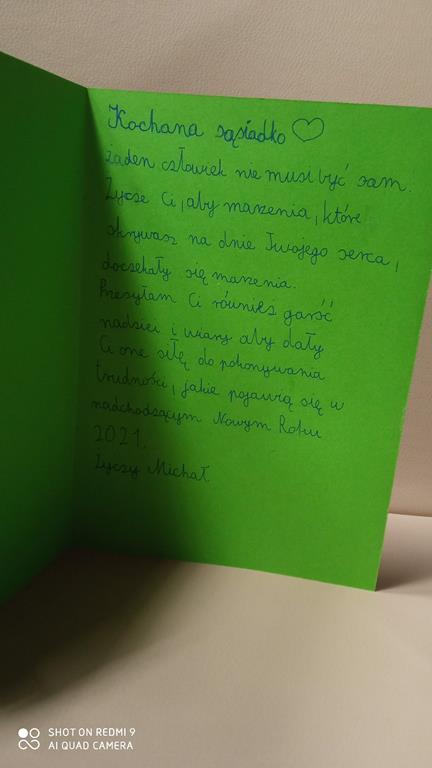 Kochana sąsiadko ♡
żaden człowiek nie musi być sam.
Życzę Ci, aby marzenia, które
skrywasz na dnie Twojego serca,
doczekały się marzenia.
Przesyłam Ci również garść
nadziei i wiary aby dały
Ci one siłę do pokonywania
trudności, jakie pojawią się w
nadchodzącym Nowym Roku
2021.
Życzy Michał
SHOT ON REDMI 9
AI QUAD CAMERA